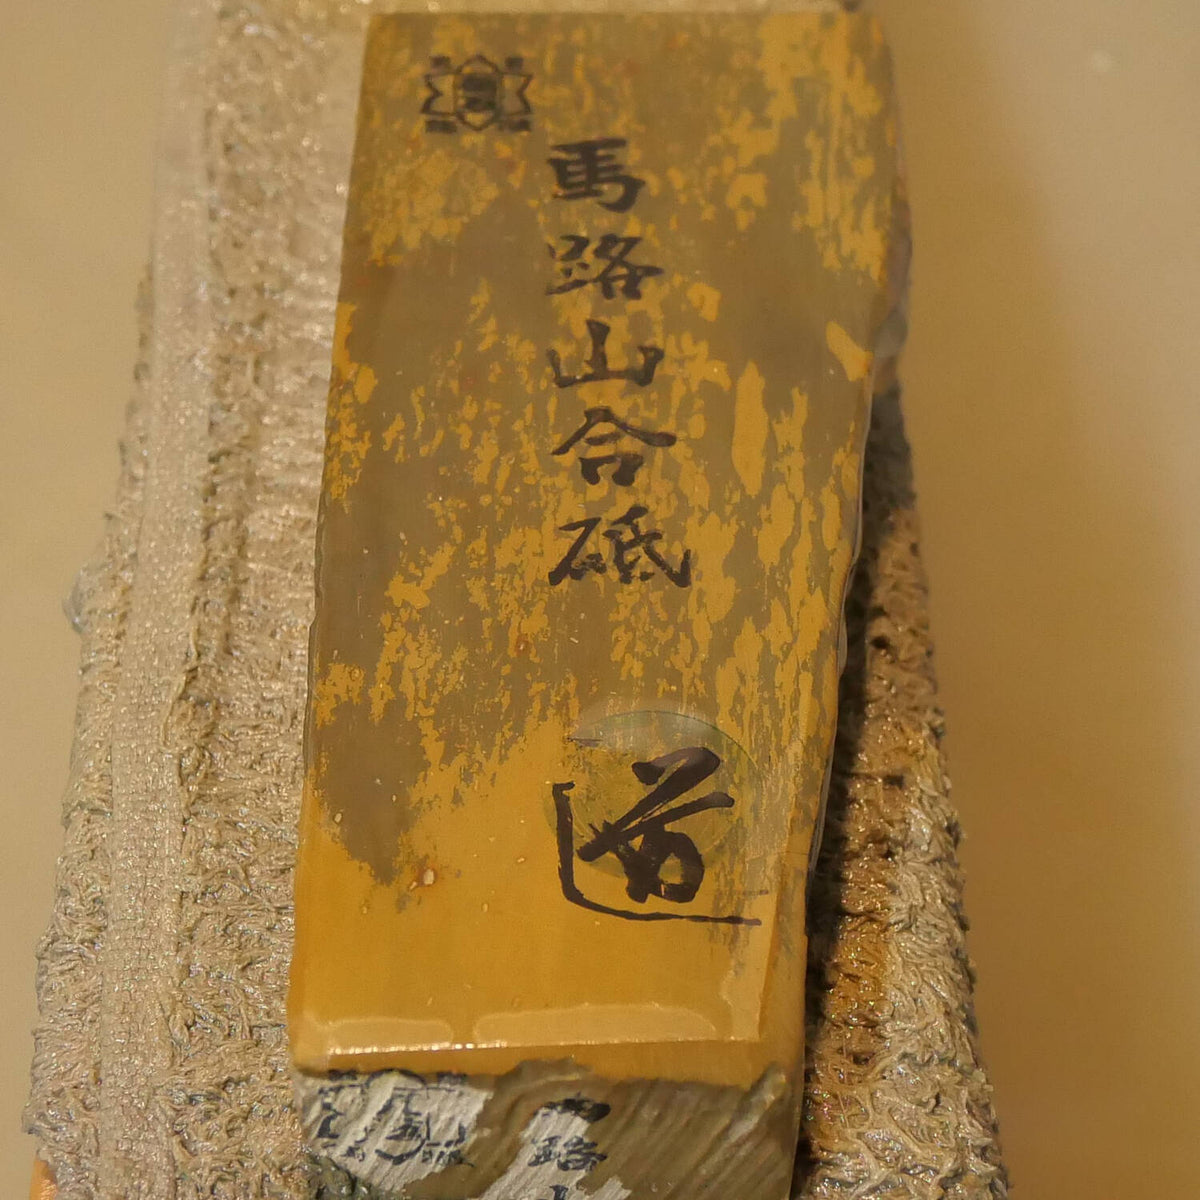 馬路山合砥
道
路